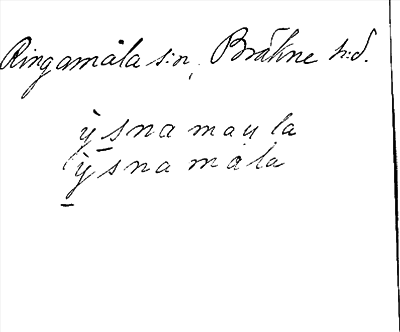 Ringamåla s:n, Bräkne h:d.
ỳsnamaųla
ỳsnamåla